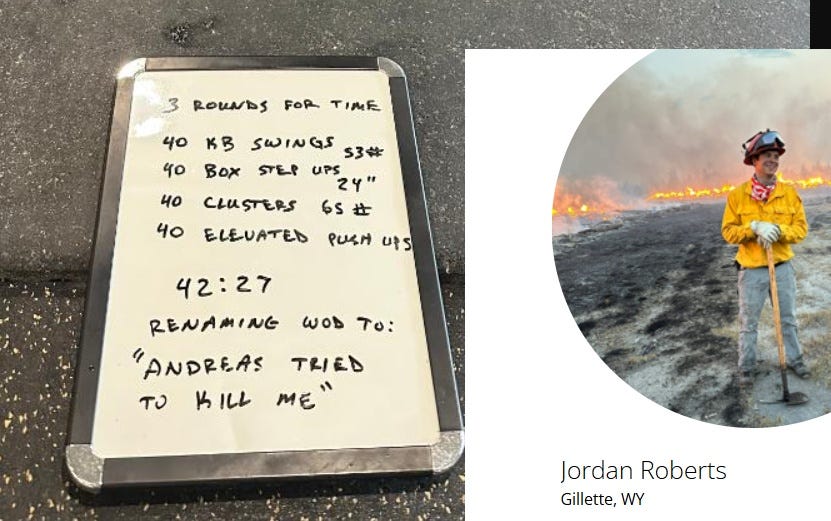 3 ROUNDS FOR TIME
40 KB SWINGS 53#
40 BOX STEP UPS 24"
40 CLUSTERS 65 #
40 ELEVATED PUSH UPS
42:27
RENAMING WOD TO:
"ANDREAS TRIED
TO KILL ME"
Jordan Roberts
Gillette, WY